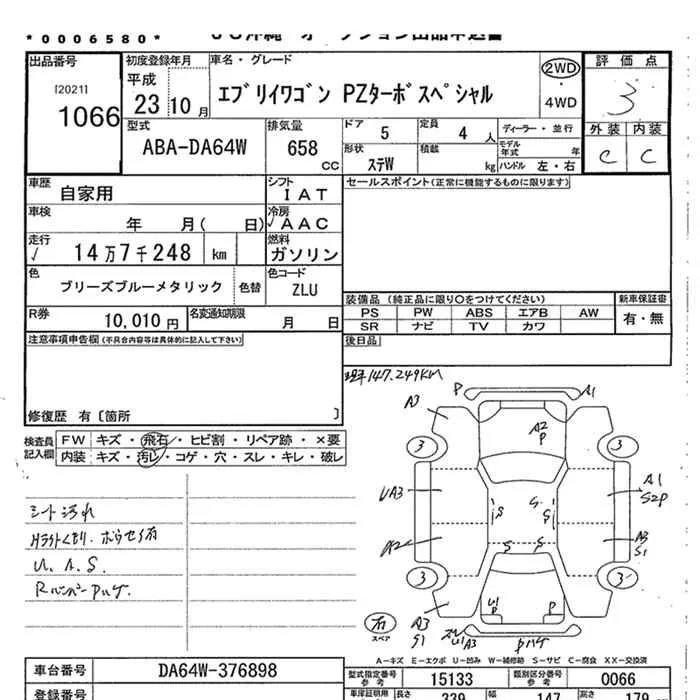 *0006580*
出品番号
[2021]
1066
初度登録年月
平成
23 10 月
車名・グレード
エブリイワゴン PZターボスペシャル
2WD
・
4WD
評価点
3
外装 内装
C C
型式
ABA-DA64W
排気量
658
CC
ドア
5
定員
4 人
ディーラー・並行
形状
ステW
積載
kg
モデル年式 年
ハンドル 左・右
車歴
自家用
シフト
IAT
セールスポイント(正常に機能するものに限ります)
車検
年 月( 日)
冷房
✓AAC
走行
✓ 14万7千248 km
燃料
ガソリン
色
ブリーズブルーメタリック
色替
色コード
ZLU
装備品(純正品に限り○をつけてください)
新車保証書
PS PW ABS エアB AW
有・無
SR ナビ TV カワ
R券
10,010 円
名変通知期限
月 日
後日品
注意事項申告欄(不具合内容等は具体的に記入して下さい)
修復歴 有〔箇所 〕
現車147.249KM
検査員記入欄
FW キズ・飛石・ヒビ割・リペア跡・×要
内装 キズ・汚レ・コゲ・穴・スレ・キレ・破レ
シート汚れ
U.A.S.
RバンパーPハゲ.
P
A1
A3
A2
P
3
3
UA3
A1
S2P
S
S
S
S
A2
A3
S1
S
S
3
3
U1
P
P
有
スペア
A3
S1
A3
Pハゲ
A-キズ E-エクボ U-凹み W-補修跡 S-サビ C-腐食 XX-交換済
車台番号
DA64W-376898
型式指定番号
参考
15133
類別区分番号
参考
0066
登録番号
車庫証明用
長さ
339
幅
147
高さ
179